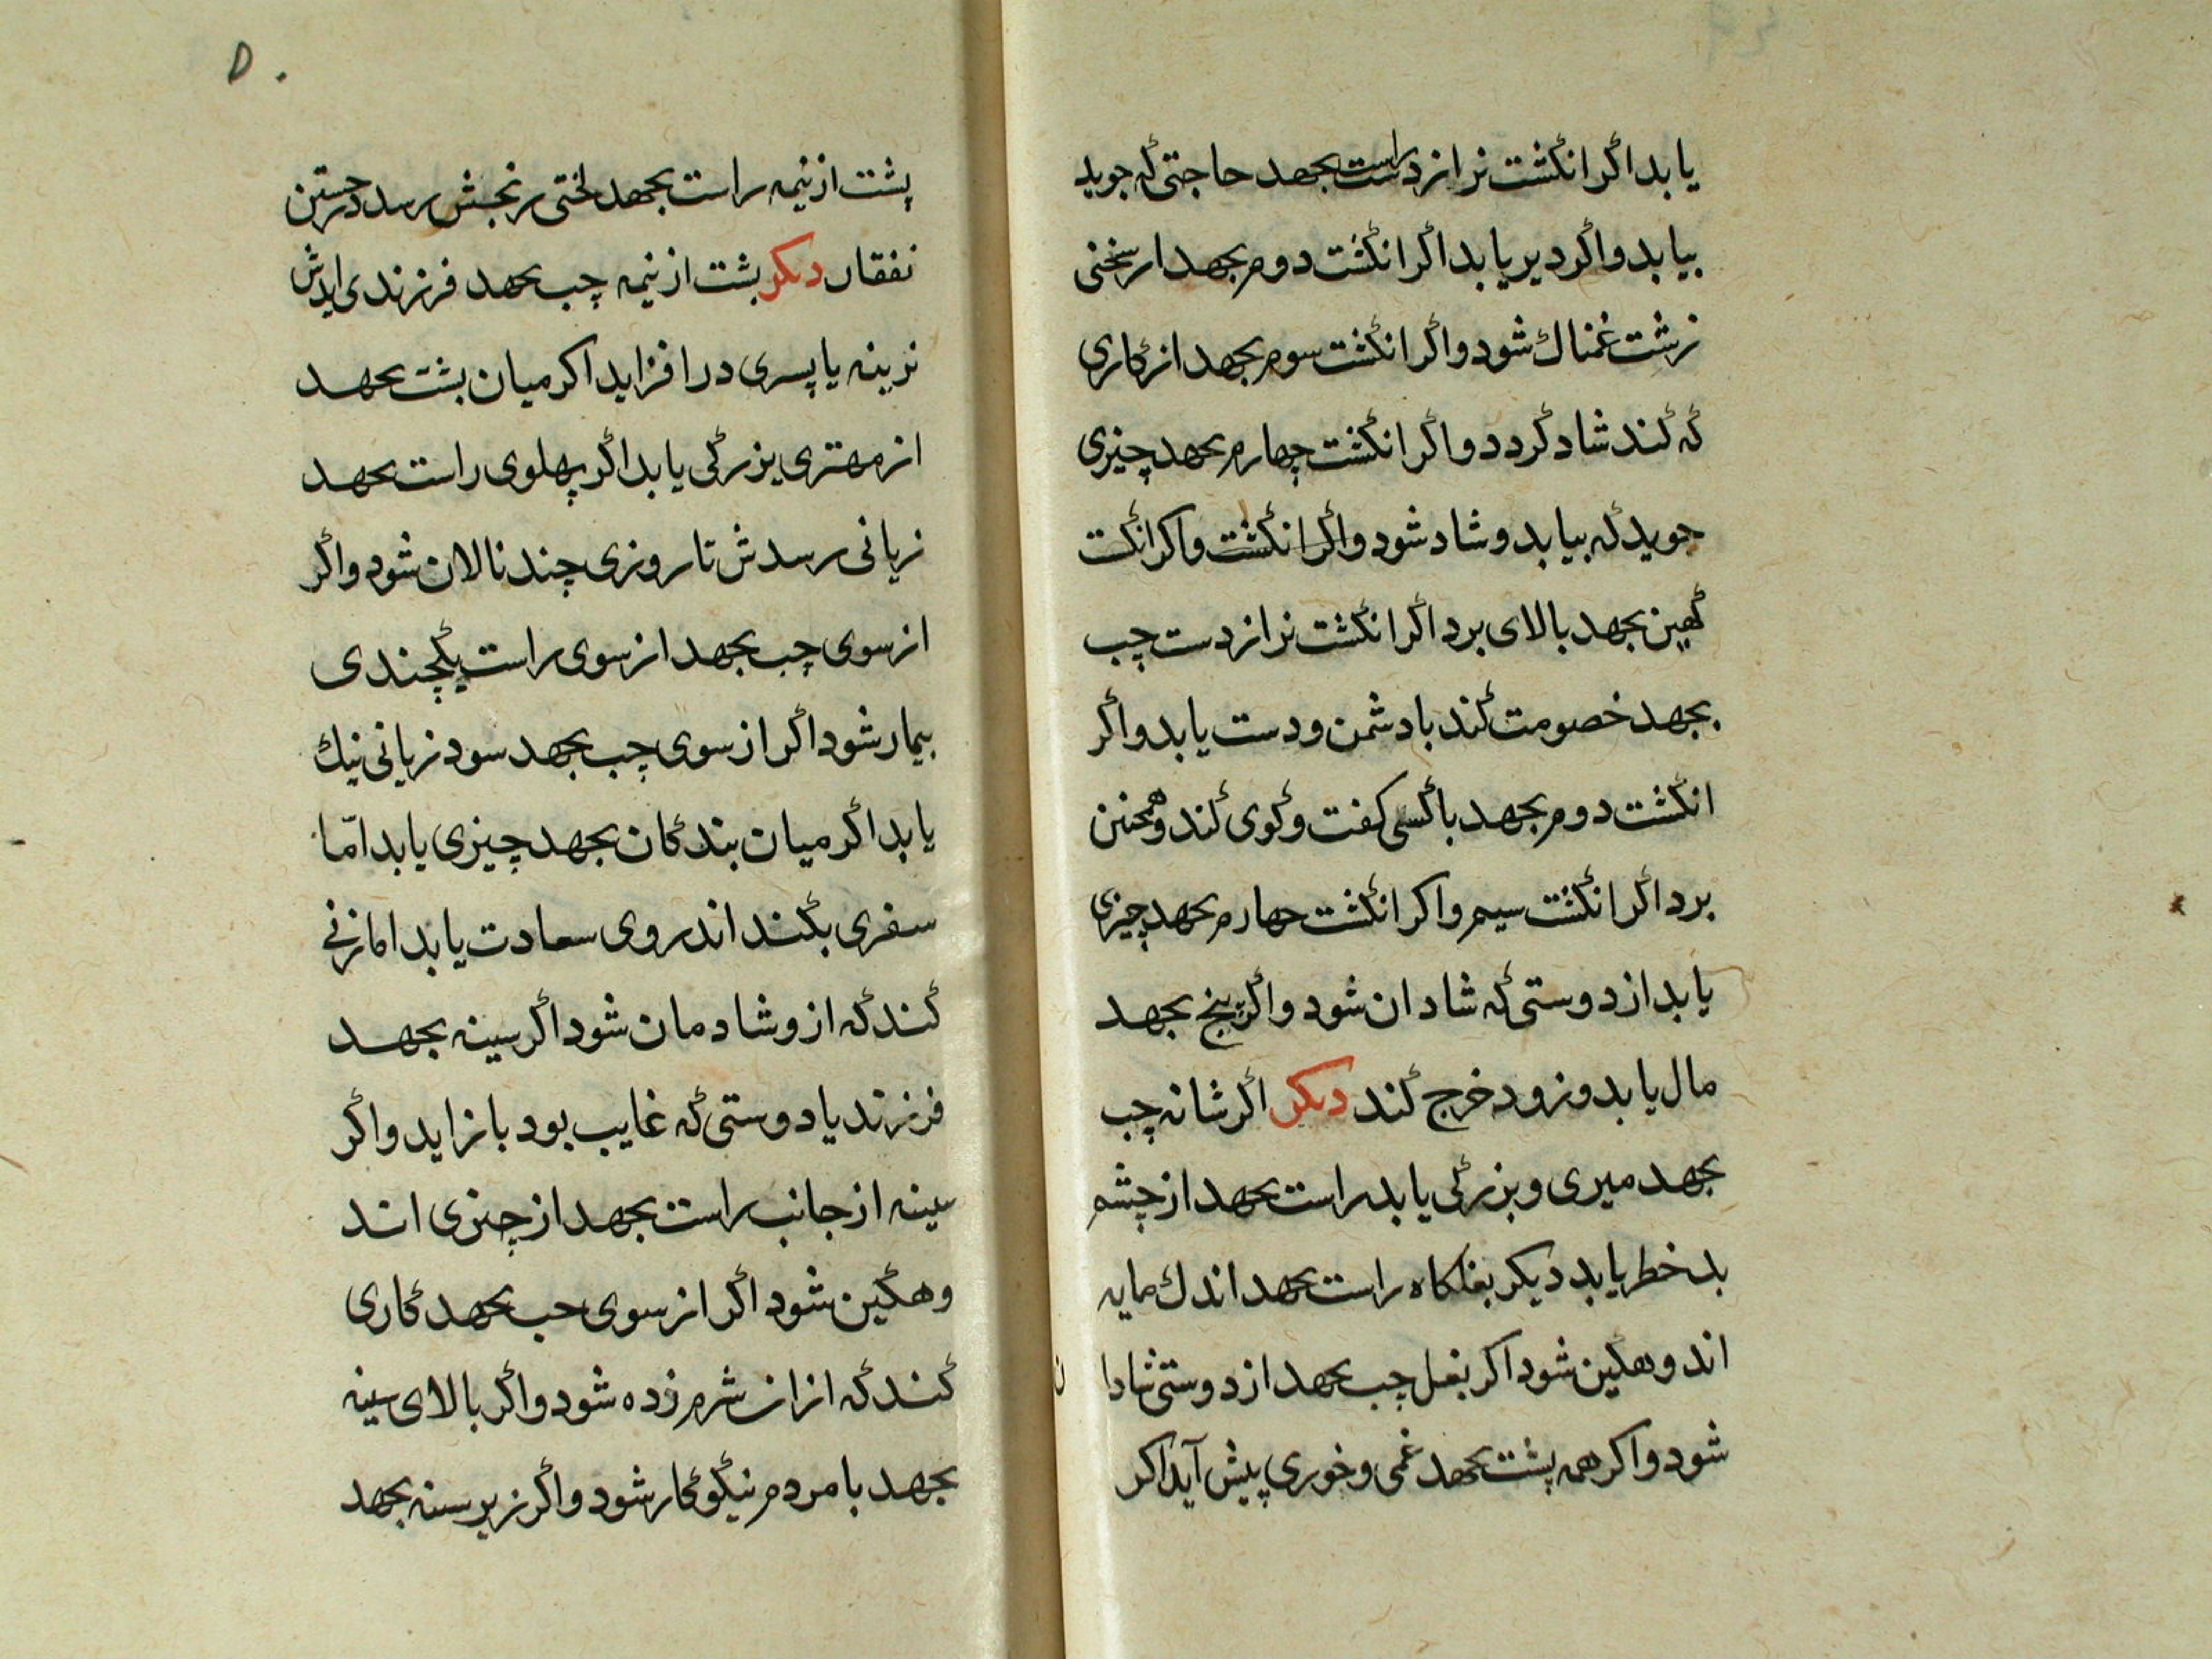 یابد اگر انگشت نر از دست راست بجهد حاجتی که جوید
بیابد واگر دیر یابد اگر انگشت دوم بجهد از سخنی
زشت غمناک شود واگر انگشت سوم بجهد از کاری
که کند شاد گردد واگر انگشت چهارم بجهد چیزی
جوید که بیابد و شاد شود واگر انگشت واکر انگشت
کهین بجهد بالای برد اگر انگشت نر از دست چپ
بجهد خصومت کند با دشمن ودست یابد واگر
انگشت دوم بجهد با کسی کفت وکوی کند وهمچنین
برد اگر انگشت سیم واکر انگشت چهارم بجهد چیزی
یابد از دوستی که شادان شود واگر پنج بجهد
مال یابد وزود خرج کند دیکر اگر شانه چپ
بجهد میری وبزرگی یابد راست بجهد از چشم
بد خطر یابد دیکر بغلکاه راست بجهد اندک مایه
اندوهکین شود اکر بغل چپ بجهد از دوستی شادان
شود واکر همه پشت بجهد غمی وخوری پیش آید اکر
۵۰
پشت از نیمه راست بجهد لختی رنجش رسد در جستن
نفقات دیکر پشت از نیمه چپ بجهد فرزندی ایدش
نرینه یا پسری درافزاید اکر میان پشت بجهد
از مهتری بزرگی یابد اگر پهلوی راست بجهد
زیانی رسدش تا روزی چند نالان شود واگر
از سوی چپ بجهد از سوی راست یکچندی
بیمار شود اگر از سوی چپ بجهد سود زیانی نیک
یابد اگر میان بندگان بجهد چیزی یابد امّا
سفری بکند اندروی سعادت یابد اما زنی
کند که ازو شادمان شود اگر سینه بجهد
فرزند یا دوستی که غایب بود باز اید واگر
سینه از جانب راست بجهد از چیزی اند
وهکین شود اگر از سوی چپ بجهد کاری
کند که ازان شرم زده شود واگر بالای سینه
بجهد با مردم نیکوکار شود واگر زیر سینه بجهد